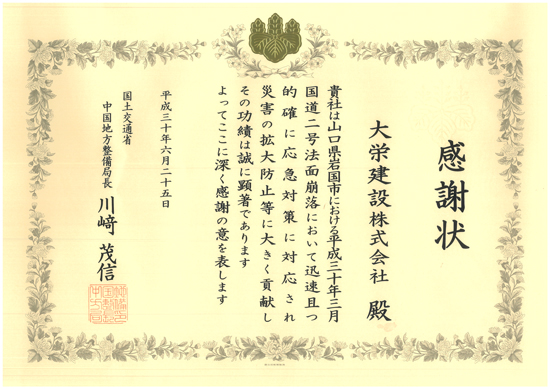 感謝状
大栄建設株式会社 殿
貴社は山口県岩国市における平成三十年三月
国道二号法面崩落において迅速且つ
的確に応急対策に対応され
災害の拡大防止等に大きく貢献し
その功績は誠に顕著であります
よってここに深く感謝の意を表します
平成三十年六月二十五日
国土交通省
中国地方整備局長 川﨑 茂信